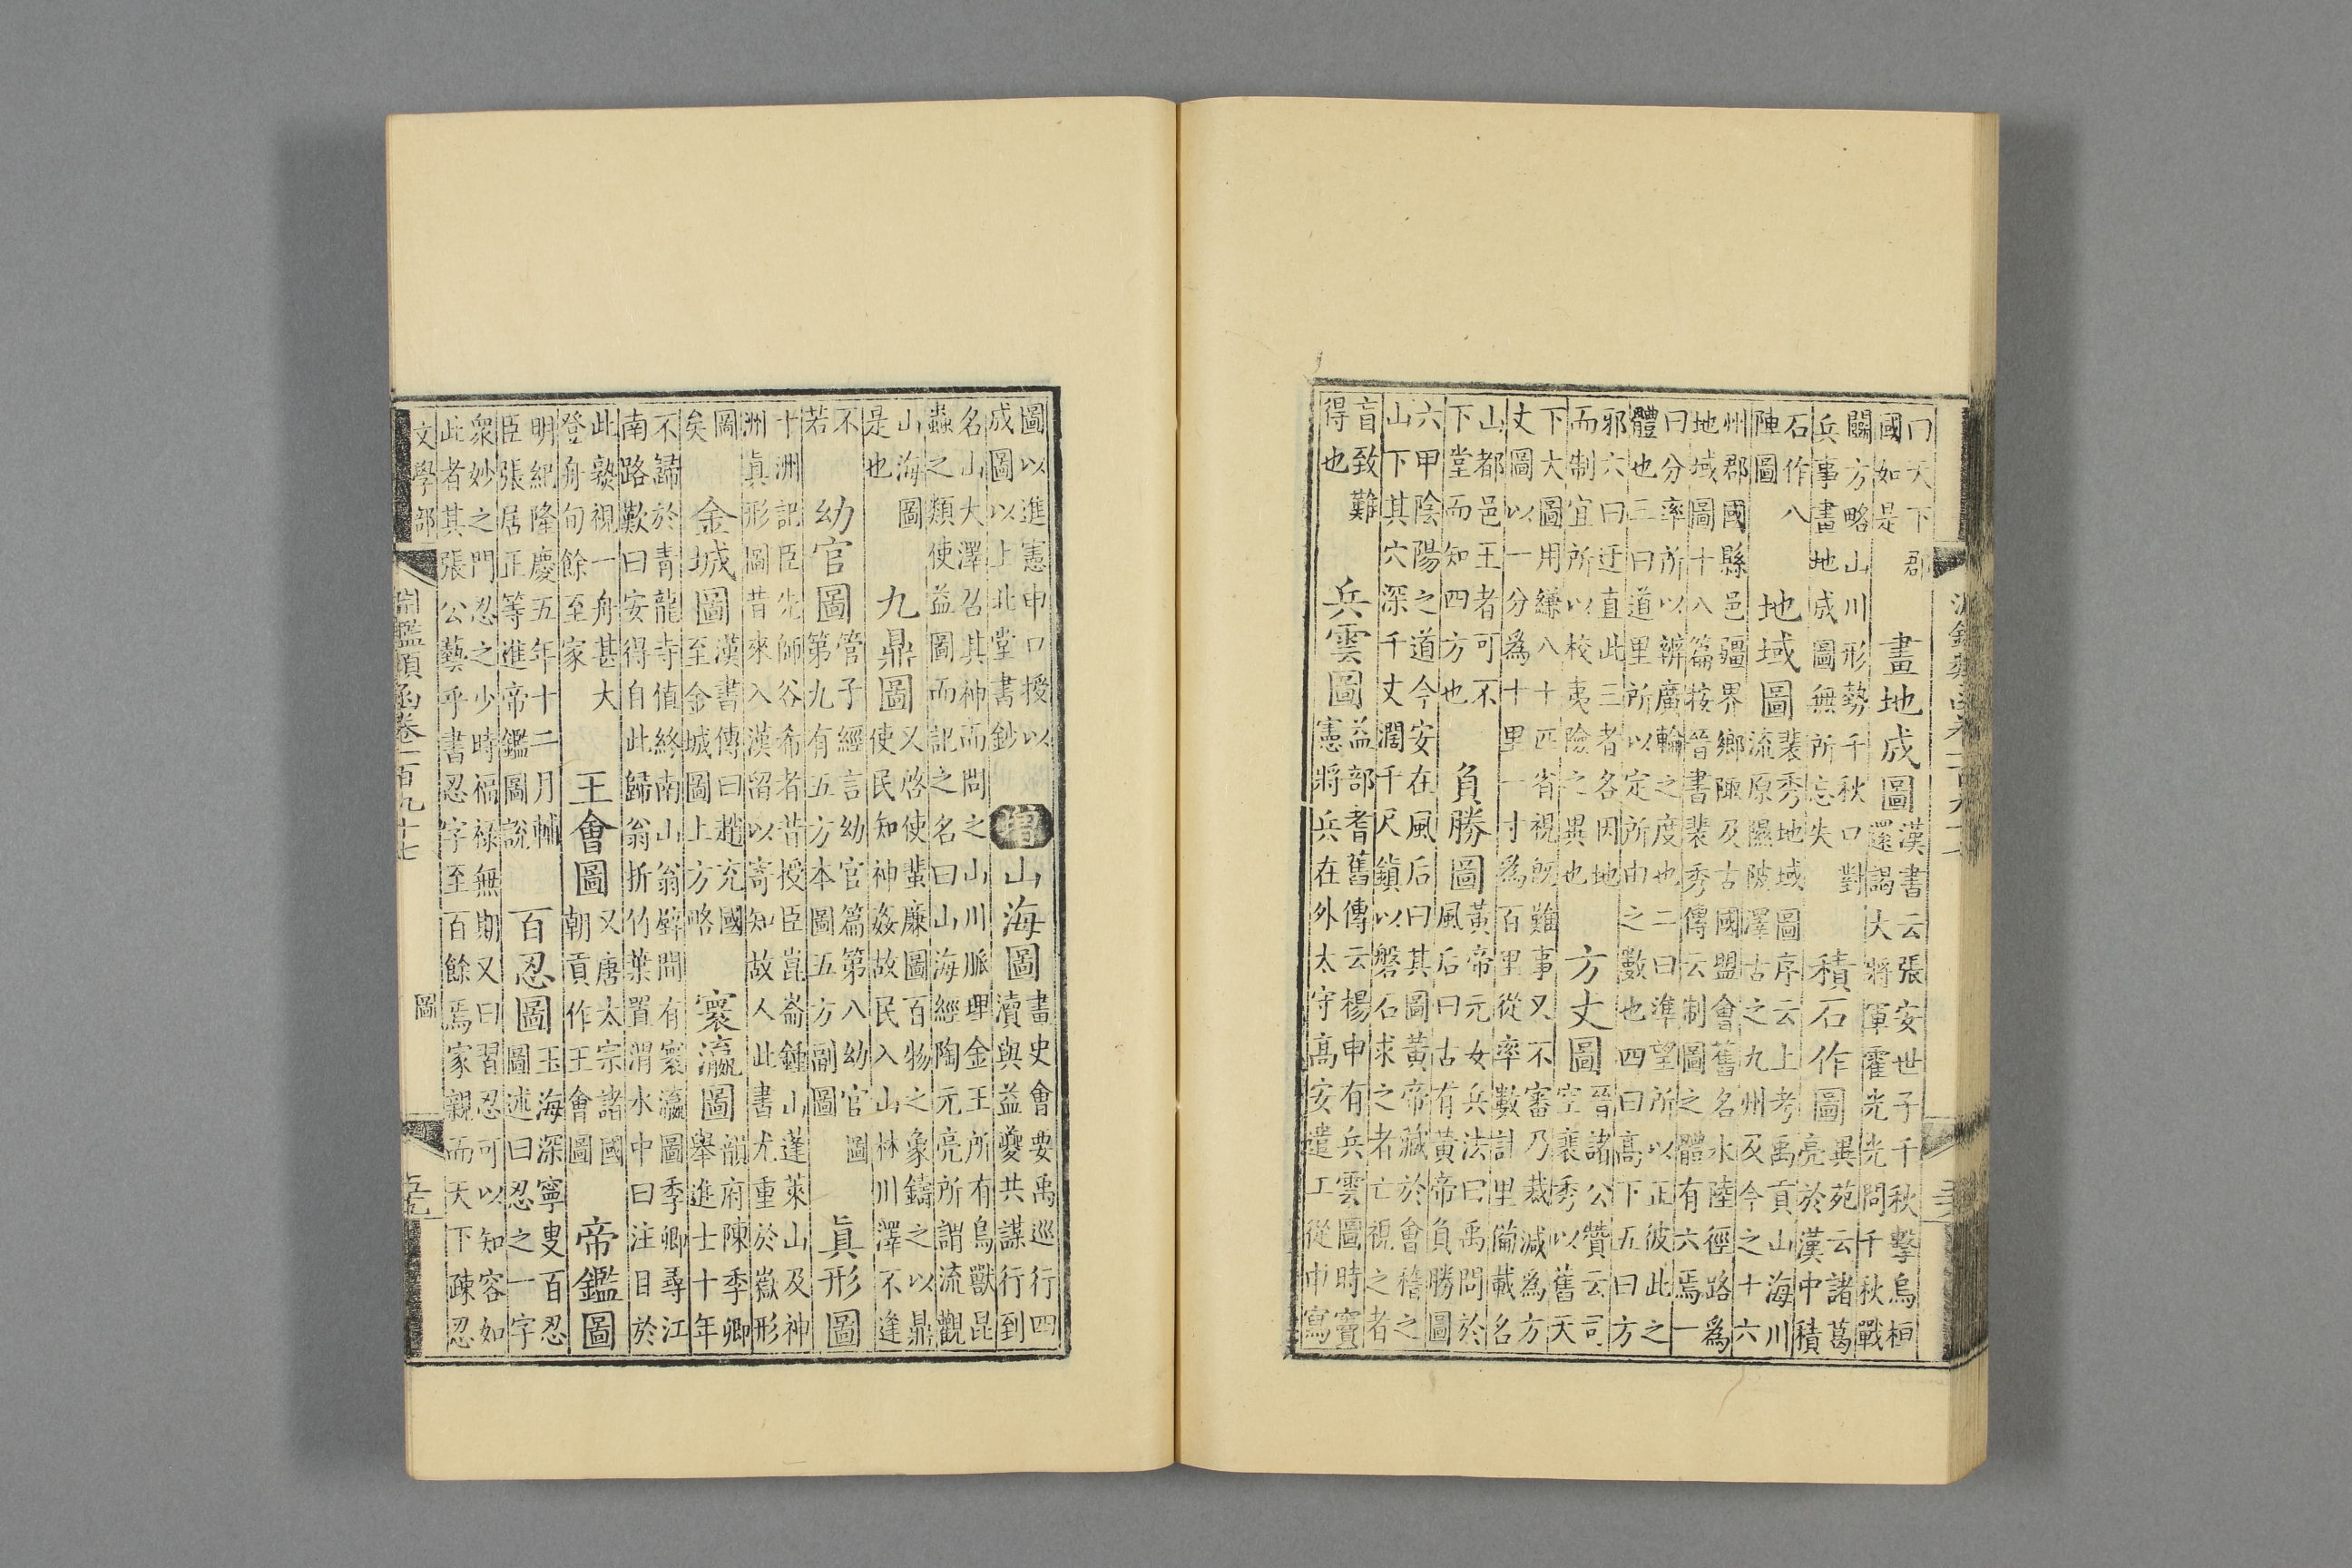 曰天下郡
國如是
畫地成圖
漢書云張安世子千秋擊烏桓
還謁大將軍霍光光問千秋戰
鬬方略山川形勢千秋口對
兵事畫地成圖無所忘失
積石作圖
異苑云諸葛
亮於漢中積
石作八
陣圖
地域圖
裴秀地域圖序云上考禹貢山海川
流原隰陂澤古之九州及今之十六
州郡國縣邑疆界鄉陬及古國盟會舊名水陸徑路爲
地域圖十八篇按晉書裴秀傳云制圖之體有六焉一
曰分率所以辨廣輪之度也二曰準望所以正彼此之
體也三曰道里所以定所由之數也四曰高下五曰方
邪六曰迂直此三者各因地
而制宜所以校夷險之異也
方丈圖
晉諸公贊云司
空裴秀以舊天
下大圖用縑八十匹省視旣難事又不審乃裁減爲方
丈圖以一分爲十里一寸爲百里從率數計里備載名
山都邑王者可不
下堂而知四方也
負勝圖
黃帝元女兵法曰禹問於
風后曰古有黃帝負勝圖
六甲陰陽之道今安在風后曰其圖黃帝藏於會稽之
山下其穴深千丈濶千尺鎮以磐石求之者亡視之者
盲致難
得也
兵雲圖
益部耆舊傳云楊申有兵雲圖時竇
憲將兵在外太守高安遣工從申寫
圖以進憲申口授以
成圖以上北堂書鈔
增
山海圖
畫史會要禹巡行四
瀆與益夔共謀行到
名山大澤召其神而問之山川脈理金玉所有鳥獸昆
蟲之類使益圖而記之名曰山海經陶元亮所謂流觀
山海圖
是也
九鼎圖
又啓使蜚廉圖百物之象鑄之以鼎
使民知神姦故民入山林川澤不逢
不
若
幼官圖
管子經言幼官篇第八幼官圖
第九有五方本圖五方副圖
真形圖
十洲記臣先師谷希者昔授臣崑崙鍾山蓬萊山及神
洲眞形圖昔來入漢留以寄知故人此書尤重於嶽形
圖
矣
金城圖
漢書傳曰趙充國
至金城圖上方略
寰瀛圖
韻府陳季卿
舉進士十年
不歸於青龍寺值終南山翁壁間有寰瀛圖季卿尋江
南路歎曰安得自此歸翁折竹葉置渭水中曰注目於
此熟視一舟甚大
登舟旬餘至家
王會圖
又唐太宗諸國
朝貢作王會圖
帝鑑圖
明紀隆慶五年十二月輔
臣張居正等進帝鑑圖說
百忍圖
玉海深寧叟百忍
圖述曰忍之一字
衆妙之門忍之少時福祿無期又曰習忍可以知容如
此者其張公藝乎書忍字至百餘焉家親而天下疎忍
文學部 圖
鑑類函卷一百九十七